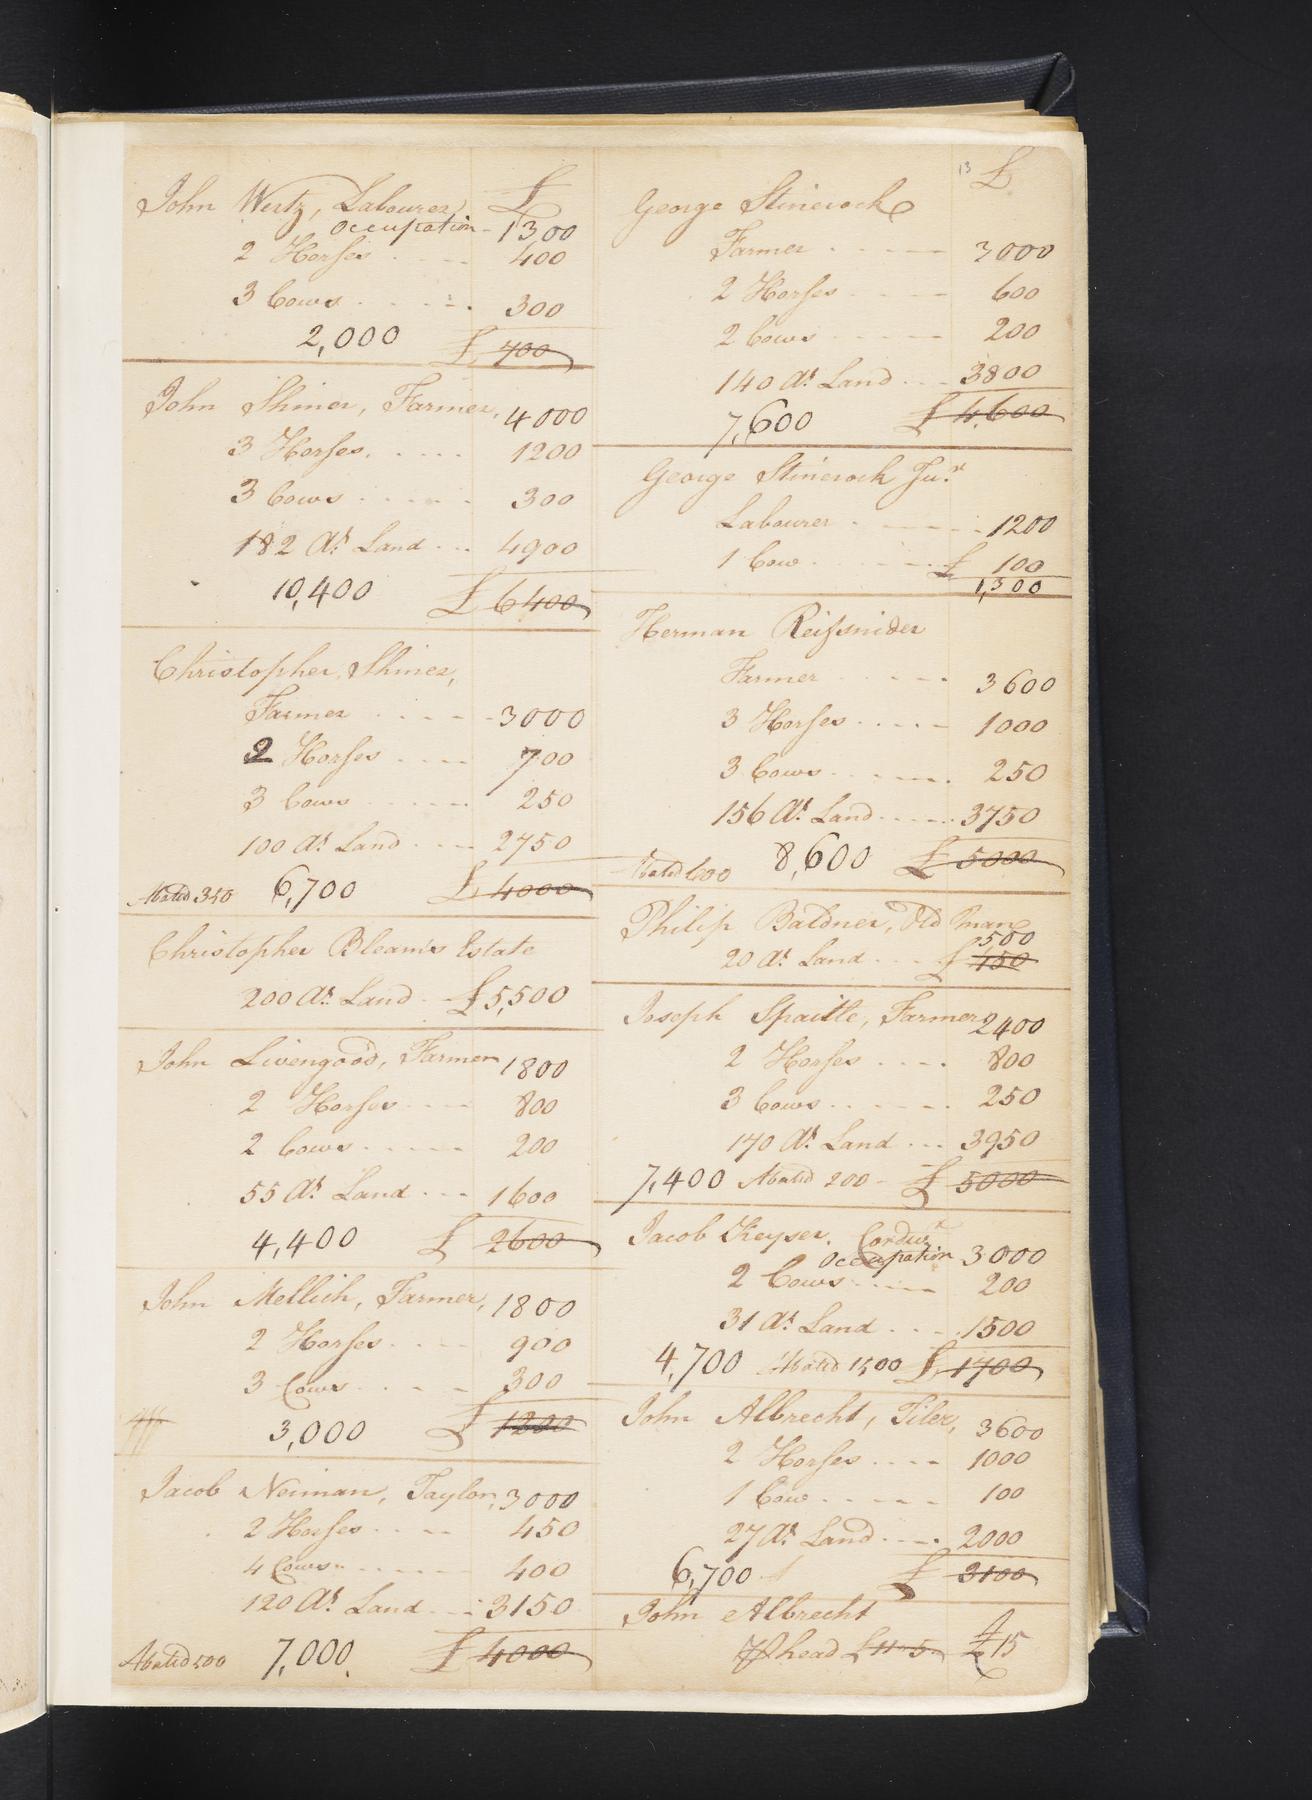 £
John Wertz, Labourer
Occupation - 1300
2 Horses 400
3 Cows 300
2,000 £ 700
John Shiner, Farmer, 4000
3 Horses 1200
3 Cows 300
182 As Land 4900
10,400 £ 6400
Christopher Shiner,
Farmer 3000
2 Horses 700
3 Cows 250
100 As Land 2750
Abated 350 6,700 £ 4000
Christopher Bleam's Estate
200 As Land £5,500
John Livengood, Farmer 1800
2 Horses 800
2 Cows 200
55 As Land 1600
4,400 £ 2600
John Mellich, Farmer, 1800
2 Horses 900
3 Cows 300
3,000 £ 1200
Jacob Neiman, Taylor, 3000
2 Horses 450
4 Cows 400
120 As Land 3150
Abated 500 7,000 £ 4000
13 £
George Stinerock
Farmer 3000
2 Horses 600
2 Cows 200
140 As Land 3800
7,600 £ 4,600
George Stinerock Jur
Labourer 1200
1 Cow £ 100
1,300
Herman Reifsnider
Farmer 3600
3 Horses 1000
3 Cows 250
156 As Land 3750
Abated 600 8,600 £ 5000
Philip Baldner, Old Man
500
20 As Land £ 450
Joseph Spaitle, Farmer 2400
2 Horses 800
3 Cows 250
170 As Land 3950
7,400 Abated 200 - £ 5000
Jacob Keyser, Cordwr
Occupation 3000
2 Cows 200
31 As Land 1500
4,700 Abated 1500 £ 1700
John Albrecht, Tiler, 3600
2 Horses 1000
1 Cow 100
27 As Land 2000
6,700 £ 3100
John Albrecht
head £11-5 £15